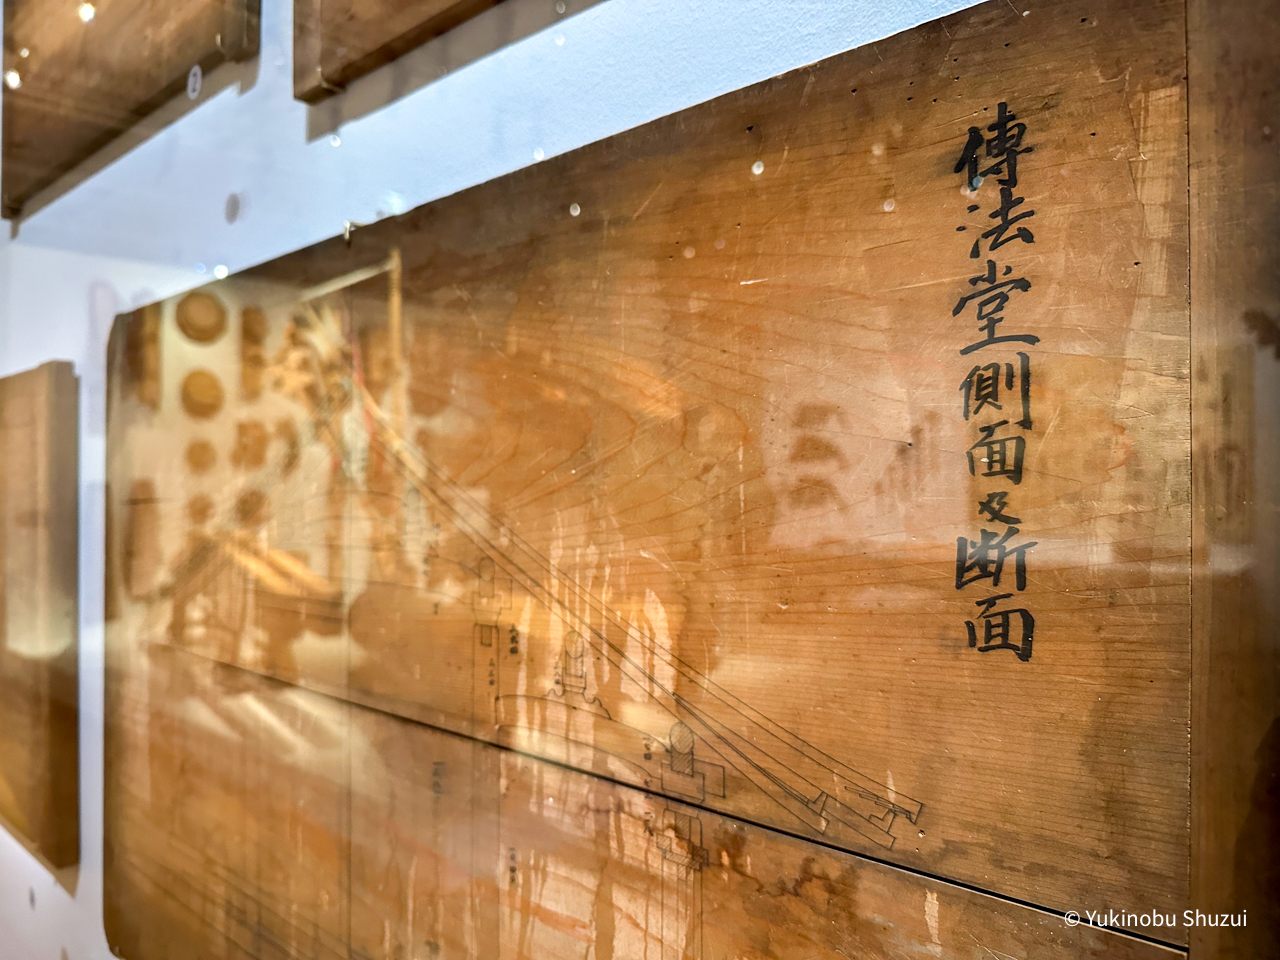 傳法堂側面及断面
2
© Yukinobu Shuzui